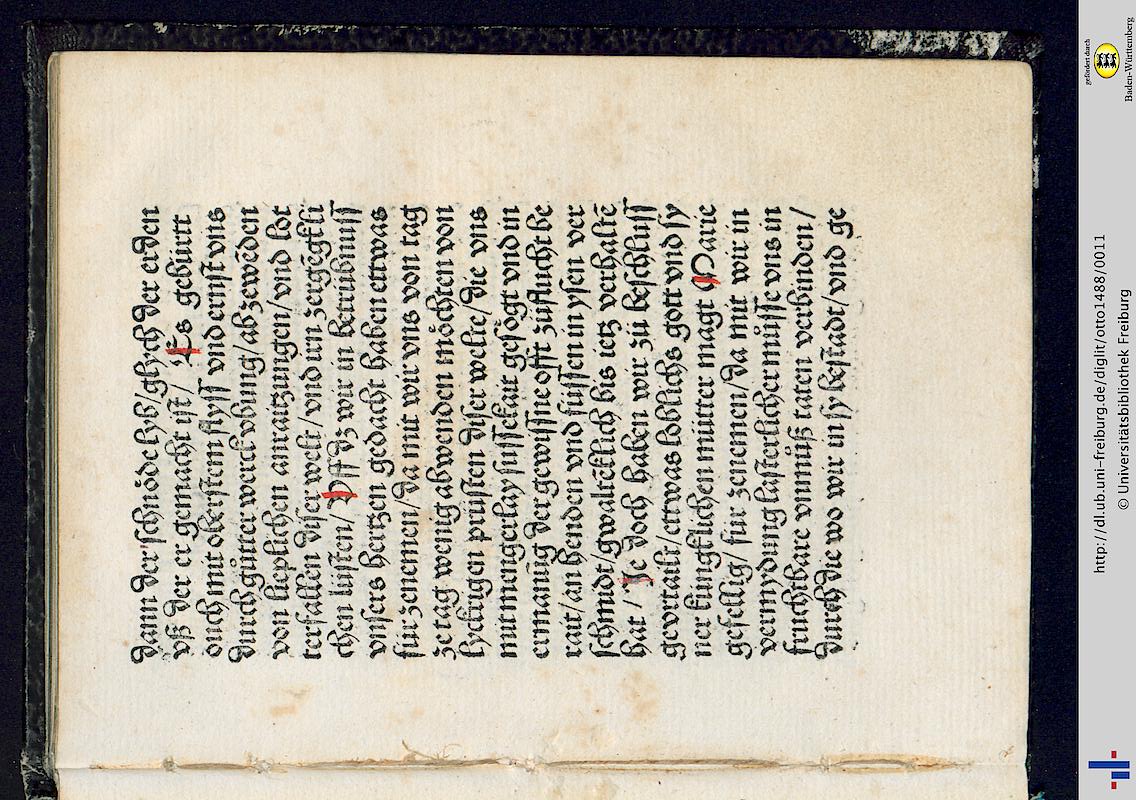 dann der schnöde lyb/glych der erden
vß der er gemacht ist/ Es gebürtt
ouch mit oberstem flyss vnd ernst vns
durch gůtter werck vbung/ab zewēden
von lieplichen anraitzungen/vnd lot
terfallen diser welt/vnd vn zergēgkli
chen lüsten/ Vff dz wir in betrübnuss
vnsers hertzen gedacht haben ettwas
für zenemen/da mit wir vns von tag
ze tag wenig abwenden möchten von
lyckigen prüsten diser welte/die vns
mit mengerlay süssekait gesögt vnd in
ermanūg der gewissne offt zůflucht be
rait/an henden vnd füssen in ysen ver
schmidt/gwaltēklich bis ietz verhaltē
hat / Je doch haben wir zů beschluss
gevrtailt/ettwas loblichs gott vnd sy
ner küngklichen můtter magt Marie
gefellig/ für zenemen/da mit wir in
vermydung lasterlicher můsse vns in
fruchtbare vnnütz taten verbinden/
durch die wo wir in sy bestadt/vnd ge
http://dl.ub.uni-freiburg.de/diglit/otto1488/0011
© Universitätsbibliothek Freiburg
gefördert durch
Baden-Württemberg